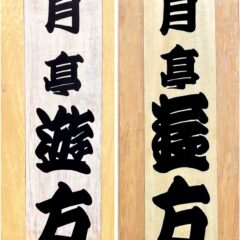 月亭方
月亭遊方